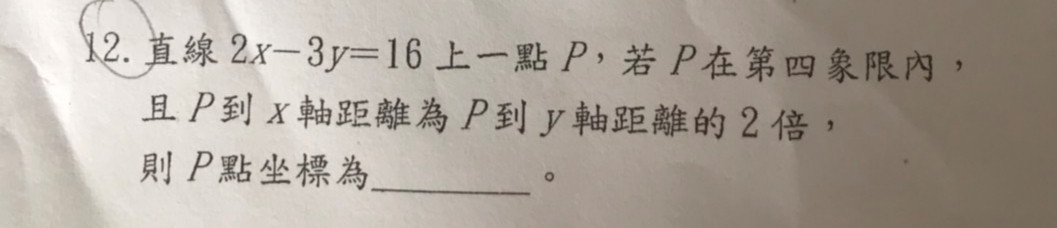 12. 直線 2x-3y=16 上一點 P，若 P 在第四象限內，
且 P 到 x 軸距離為 P 到 y 軸距離的 2 倍，
則 P 點坐標為________。